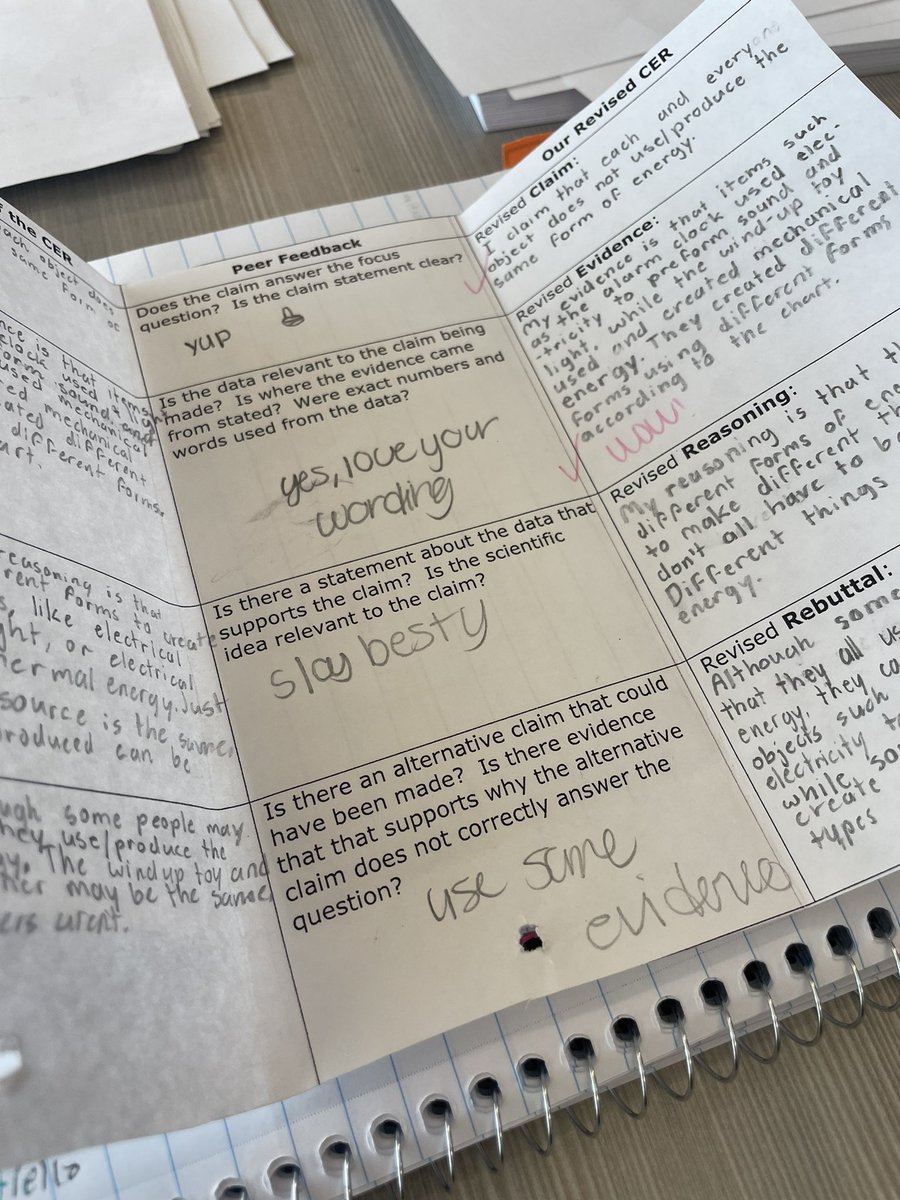 f the CER
ach object does
same form of
nce is that
clock used that items
form sound +
used mechanical
ated different
different forms.
art.
reasoning is that
rent forms to create
s, like electrical
ght, or electrical
hermal energy. Just
source is the same,
produced can be
ugh some people may
they use/produce the
gy. The wind up toy and
ther may be the same,
ers urent.
Peer Feedback
Does the claim answer the focus
question? Is the claim statement clear?
yup
Is the data relevant to the claim being
made? Is where the evidence came
from stated? Were exact numbers and
words used from the data?
yes, love your
wording
Is there a statement about the data that
supports the claim? Is the scientific
idea relevant to the claim?
slay besty
Is there an alternative claim that could
have been made? Is there evidence
that that supports why the alternative
claim does not correctly answer the
question?
use some
evidence
Our Revised CER
Revised Claim:
I claim that each and everyone
object does not use/produce the
same form of energy.
Revised Evidence:
My evidence is that items such
as the alarm clock used elec-
-tricity to preform sound and
light, while the wind-up toy
used and created mechanical
energy. They created different
forms using different forms
according to the chart.
wow!
Revised Reasoning:
My reasoning is that th
different forms of ene
to make different th
don't all have to be
Different things
energy.
Revised Rebuttal:
Although some
that they all us
energy, they ca
objects such
electricity to
while som
create
types
Hello